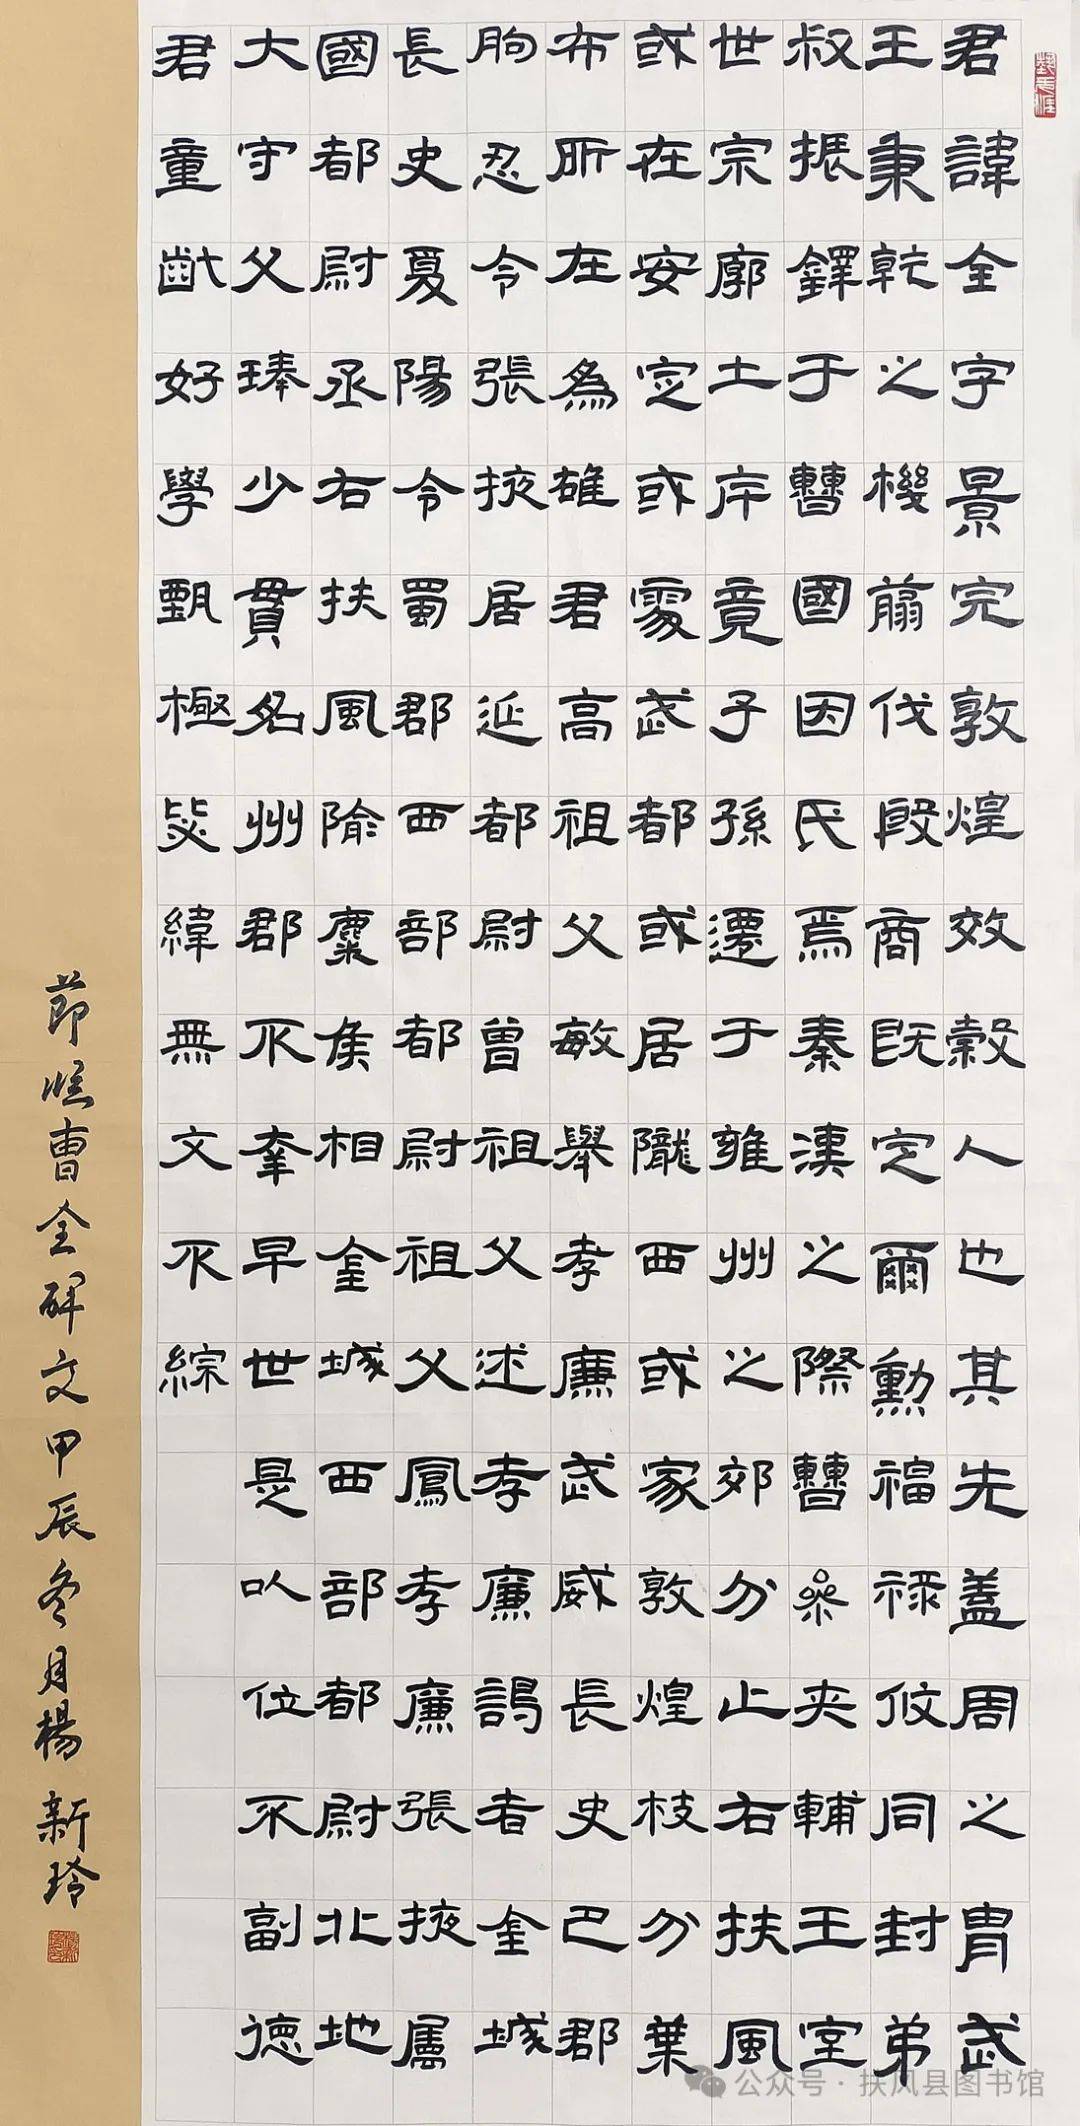 君諱全字景完敦煌效穀人也其先蓋周之胄武
王秉乾之機翦伐殷商既定爾勳福祿攸同封弟
叔振鐸于曹國因氏焉秦漢之際曹參夾輔王室
世宗廓土斥竟子孫遷于雍州之郊分止右扶風
或在安定或處武都或居隴西或家敦煌枝分葉
布所在為雄君高祖父敏舉孝廉武威長史巴郡
朐忍令張掖居延都尉曾祖父述孝廉謁者金城
長史夏陽令蜀郡西部都尉祖父鳳孝廉張掖屬
國都尉丞右扶風隃麋侯相金城西部都尉北地
大守父琫少貫名州郡不幸早世是以位不副德
君童齔好學甄極毖緯無文不綜
節臨曹全碑文甲辰冬月楊新玲
公众号·扶风县图书馆